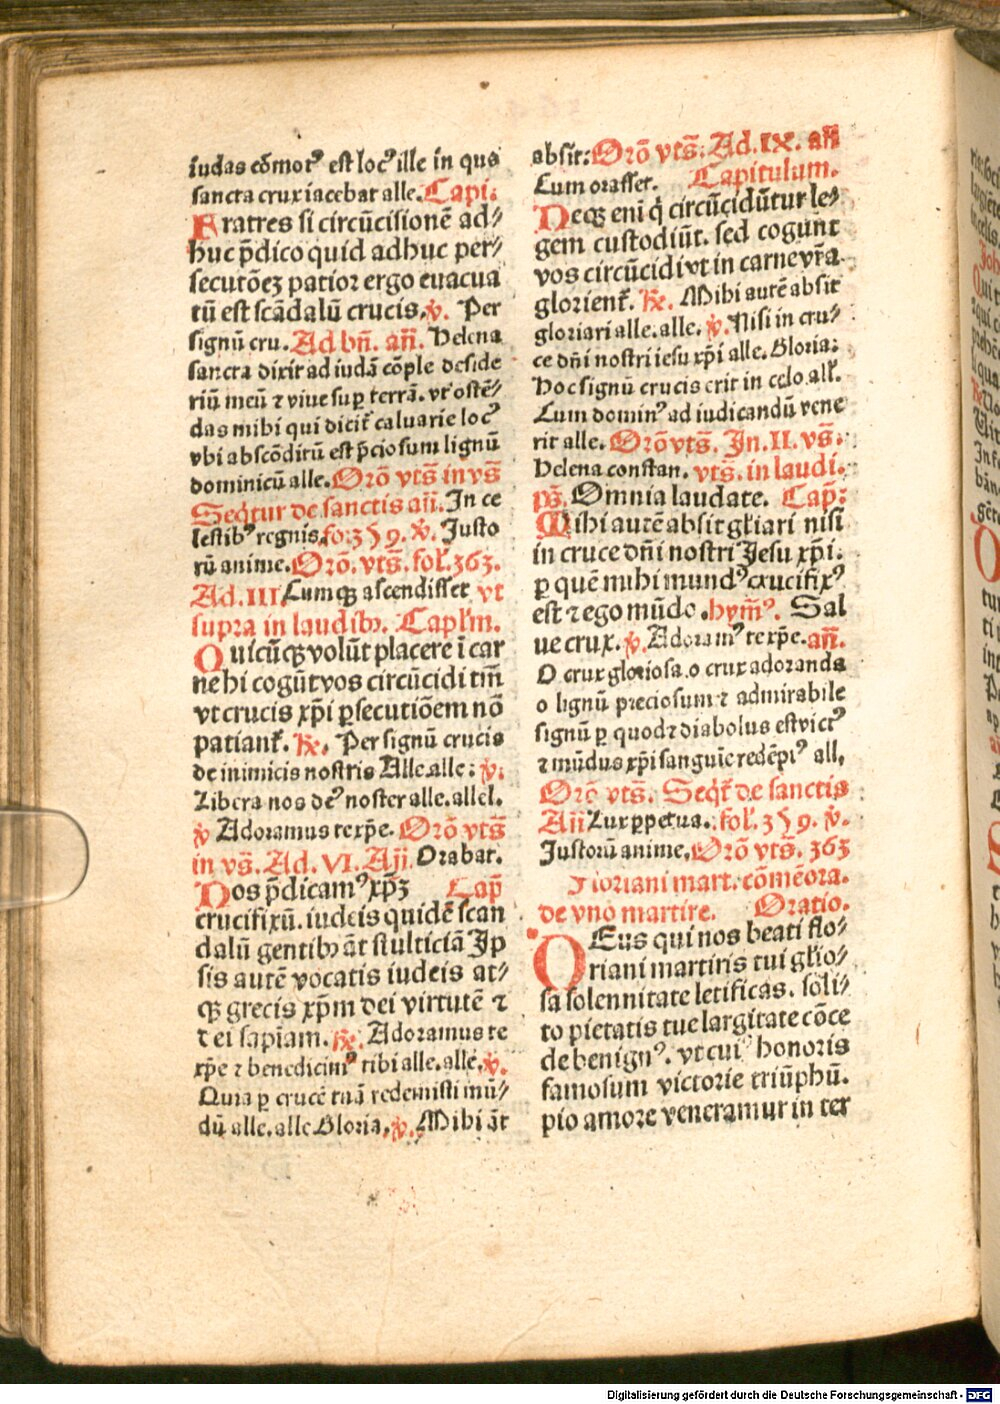 iudas cōmotꝰ est locꝰ ille in quo
sancta crux iacebat alle. Capi.
Fratres si circūcisionē ad⸗
huc p̄dico quid adhuc per⸗
secutōeꝫ patior ergo euacua
tū est scādalū crucis. ℣. Per
signū cru. Ad bn̄. an̄. Helena
sancta dixit ad iudā cōple deside
riū meū ⁊ viue super terrā. vt ostē⸗
das mihi qui dicit̄ caluarie locꝰ
vbi abscōditū est p̄ciosum lignū
dominicū alle. Orō vts̄ in vs̄
Seq̄tur de sanctis an̄. In ce
lestibꝰ regnis. fo. 359. ℣. Justo
rū anime. Orō. vts̄. fol. 363.
Ad. III. Cumqꝫ ascendisset vt
supra in laudibꝰ. Capl'm.
Quicūqꝫ volūt placere ī car
ne hi cogūt vos circūcidi tm̄
vt crucis xp̄i ꝑsecutiōem nō
patiant̄. ℟. Per signū crucis
de inimicis nostris Alle.alle: ℣.
Libera nos deꝰ noster alle. allel.
℣ Adoramus te xp̄e. Orō vts̄
in vs̄. Ad. VI. An̄. Orabat.
Nos p̄dicamꝰ xp̄ꝫ Cap̄
crucifixū. iudeis quidē scan
dalū gentibꝰ āt stulticiā Ip
sis autē vocatis iudeis at⸗
qꝫ grecis xp̄m dei virtutē ⁊
dei sapīam. ℟. Adoramus te
xp̄e ⁊ benedicimꝰ tibi alle. alle. ℣.
Quia ꝑ crucē tuā redemisti mū⸗
dū alle. alle Gloria. ℣. Mihi āt
absit: Orō vts̄. Ad. IX. an̄
Cum orasset. Capitulum.
Neqꝫ eni q̇ circūcidūtur le⸗
gem custodiūt. sed cogunt
vos circūcidi vt in carne vr̄a
glorient̄. ℟. Mihi autē absit
gloriari alle. alle. ℣. Nisi in cru⸗
ce dn̄i nostri iesu xp̄i alle. Gloria:
Hoc signū crucis erit in celo all.
Cum dominꝰ ad iudicandū vene
rit alle. Orō vts̄. In. II. vs̄.
Helena constan. vts̄. in laudi.
ps̄. Omnia laudate. Cap̄:
Mihi autē absit gl'iari nisi
in cruce dn̄i nostri Jesu xp̄i.
ꝑ quē mihi mundꝰ crucifixꝰ
est ⁊ ego mūdo. hym̄ꝰ. Sal
ue crux. ℣. Adoramꝰ te xp̄e. an̄.
O crux gloriosa. o crux adoranda
o lignū preciosum ⁊ admirabile
signū ꝑ quod ⁊ diabolus est victꝰ
⁊ mūdus xp̄i sanguīe redēpꝰ all.
Orō vts̄. Seq̄t̄ de sanctis
An̄ Lux ꝑpetua. fol. 359. ℣.
Justorū anime. Orō vts̄. 363
Floriani mart. cōmēora.
de vno martire. Oratio.
DEus qui nos beati flo⸗
riani martiris tui gl'io⸗
sa solennitate letificas. soli⸗
to pietatis tue largitate cōce
de benignꝰ. vt cuiꝰ honoris
famosum victorie triūphū.
pio amore veneramur in ter
Digitalisierung gefördert durch die Deutsche Forschungsgemeinschaft - DFG